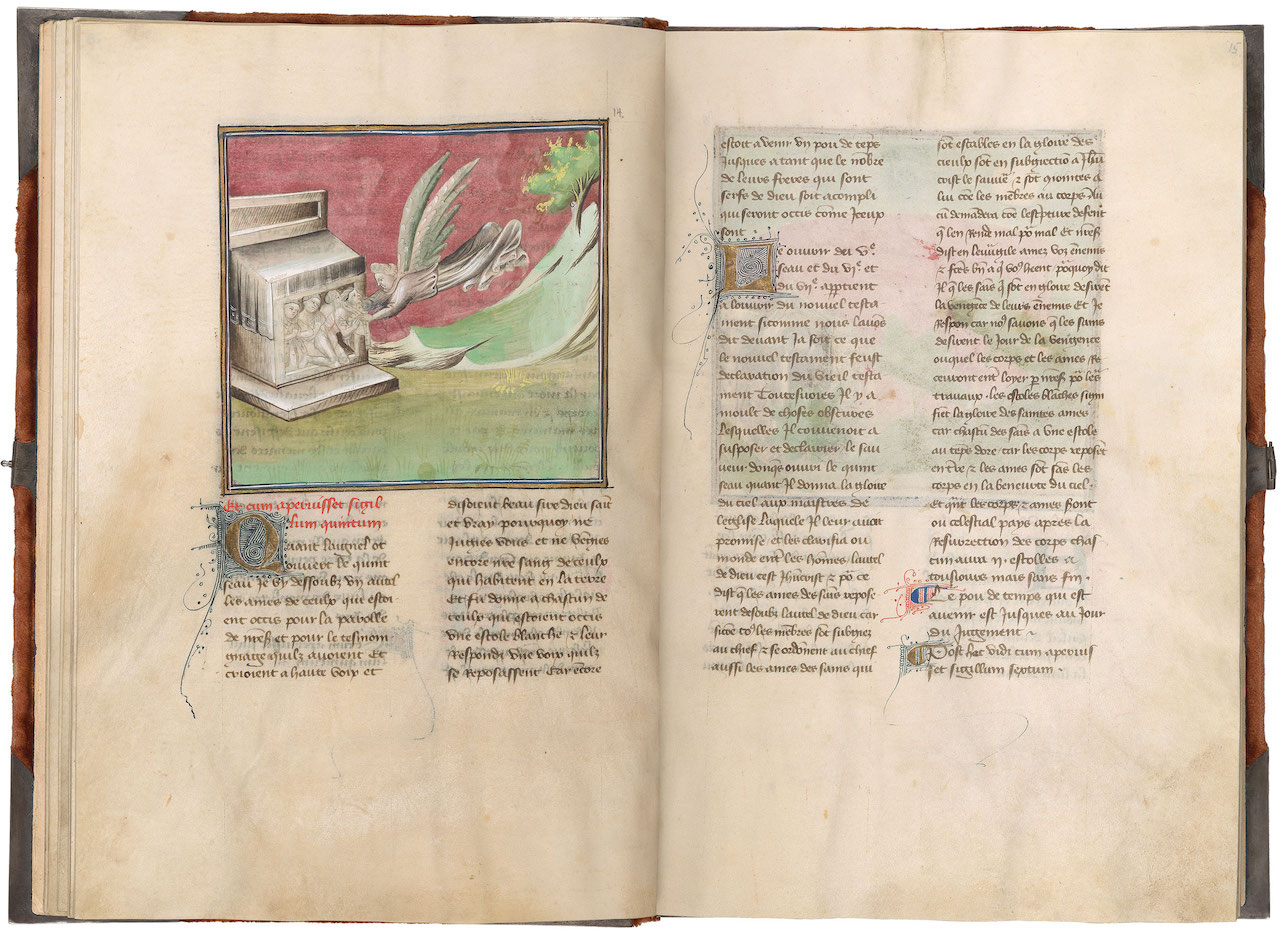 14
Et cum aperuisset sigil
lum quintum
Quant laignel ot
ouvert le quint
seau Je vy dessoubz vn autel
les ames de ceulx qui estoi
ent occis pour la parolle
de nr̃e sr̃ et pour le tesmoin
gnaige quilz auoient Et
crioient a haute voix et
disoient beau sire dieu saīt
et vray pourquoy ne
Juges vous et ne venges
encore nr̃e sang de ceulx
qui habitent en la terre
Et fu donne a chascun de
ceulx qui estoient occis
vne estole blanche ⁊ leur
Respondi vne voix quilz
se reposassent Car encore
15
estoit a venir vn pou de tēps
Jusques a tant que le nōbre
de leurs freres qui sont
serfs de dieu soit acompli
qui seront occis cōme Iceux
sont ·
Le ouurir du vᵉ
seau et du viᵉ et
du viiᵉ apptient
a louurir du nouuel testa
ment sicomme nous lauōs
dit deuant Ja soit ce que
le nouuel testament feust
declaration du vieil testa
ment Toutesuoies Il y a
moult de choses obscures
lesquelles Il conuenoit a
exposer et declairier le sau
ueur donq̄s ouuri le quint
seau quant Il donna la gloire
du ciel aux maistres de
leglise laquele Il leur auoit
promise et les clarifia ou
monde entr̄ les hōmes lautel
de dieu cest Jhūcrist ⁊ pō ce
dist q̄ les ames des sāīs repose
rent desoubz lautel de dieu car
sicōe to᷒ les mēbres sōt subgiez
au chief ⁊ se ordōnent au chief
aussi les ames des sains qui
sōt estables en la gloire des
cieulx sōt en subgiectiō a Jhū
crist le sauue᷑ ⁊ sōt Jointes a
lui cōe les mēbres au corps Au
cū demādera cōe lescpture defent
q̄ len rende mal pō mal Et nr̃e sr̃
dist en leuūgile amez voz ēnemis
⁊ frēs bn̄ a q̄ vo᷒ heent pōquoy dit
Il q̄ les sāīs q̄ sōt en gloire desirēt
la vengāce de leurs ēnemis Et Je
Respon car no᷒ sauons q̄ les sains
desirent le Jour de la vengence
ouquel les corps et les ames re
ceuront ent᷑ loyer p nr̃e sr̃ pō leur
trauaux · les estoles blāches signi
fiēt la gloire des saintes ames
car chascū des sāīs a vne estole
au tēps dore car les corps reposēt
en tr̄e ⁊ les ames sōt sās les
corps en la beneurte du ciel ·
Et q̄nt les corps ⁊ ames seront
ou celestial pays apres la
Resurrection des corps chas
cun aura ii · estolles ⁊
tousiours mais sans fin ·
Le pou de temps qui est
auenir est Jusques au Jour
du Jugement ·
Post hec vidi cum aperuis
set sigillum septum ·